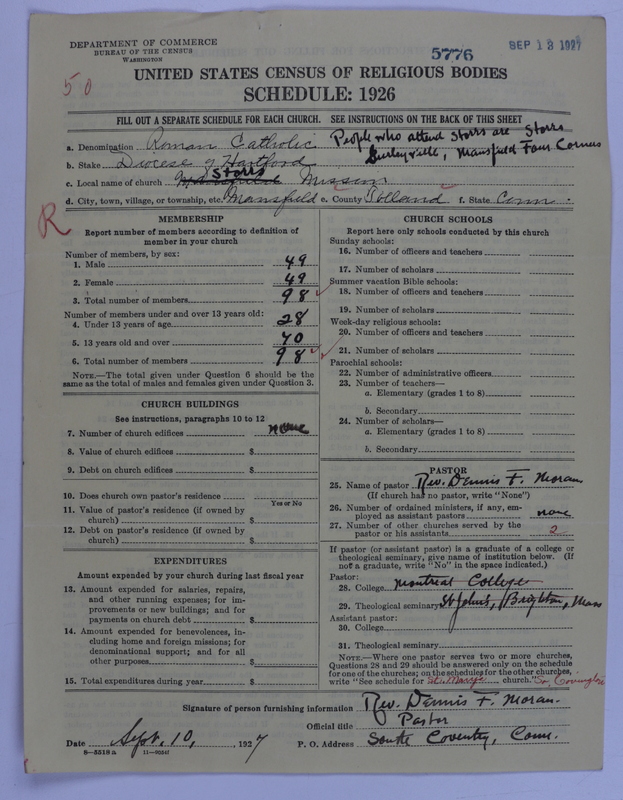 DEPARTMENT OF COMMERCE
BUREAU OF THE CENSUS
WASHINGTON
5776
SEP 13 1927
50
UNITED STATES CENSUS OF RELIGIOUS BODIES
SCHEDULE: 1926
FILL OUT A SEPARATE SCHEDULE FOR EACH CHURCH. SEE INSTRUCTIONS ON THE BACK OF THIS SHEET
a. Denomination Roman Catholic People who attend Storrs are Storrs
Gurleyville, Mansfield Four Corners
b. Stake Diocese of Hartford
c. Local name of church Storrs Mission
d. City, town, village, or township, etc. Mansfield e. County Tolland f. State Conn.
R
MEMBERSHIP
Report number of members according to definition of
member in your church
Number of members, by sex:
1. Male 49
2. Female 49
3. Total number of members 98
Number of members under and over 13 years old:
4. Under 13 years of age 28
5. 13 years old and over 70
6. Total number of members 98
NOTE.—The total given under Question 6 should be the
same as the total of males and females given under Question 3.
CHURCH BUILDINGS
See instructions, paragraphs 10 to 12
7. Number of church edifices none
8. Value of church edifices $
9. Debt on church edifices $
10. Does church own pastor's residence
Yes or No
11. Value of pastor's residence (if owned by
church) $
12. Debt on pastor's residence (if owned by
church) $
EXPENDITURES
Amount expended by your church during last fiscal year
13. Amount expended for salaries, repairs,
and other running expenses; for im-
provements or new buildings; and for
payments on church debt $
14. Amount expended for benevolences, in-
cluding home and foreign missions; for
denominational support; and for all
other purposes $
15. Total expenditures during year $
CHURCH SCHOOLS
Report here only schools conducted by this church
Sunday schools:
16. Number of officers and teachers
17. Number of scholars
Summer vacation Bible schools:
18. Number of officers and teachers
19. Number of scholars
Week-day religious schools:
20. Number of officers and teachers
21. Number of scholars
Parochial schools:
22. Number of administrative officers
23. Number of teachers—
a. Elementary (grades 1 to 8)
b. Secondary
24. Number of scholars—
a. Elementary (grades 1 to 8)
b. Secondary
PASTOR
25. Name of pastor Rev. Dennis F. Moran
(If church has no pastor, write "None")
26. Number of ordained ministers, if any, em-
ployed as assistant pastors none
27. Number of other churches served by the
pastor or his assistants 2
If pastor (or assistant pastor) is a graduate of a college or
theological seminary, give name of institution below. (If
not a graduate, write "No" in the space indicated.)
Pastor:
28. College Montreal College
29. Theological seminary St John's, Brighton, Mass
Assistant pastor:
30. College
31. Theological seminary
NOTE.—Where one pastor serves two or more churches,
Questions 28 and 29 should be answered only on the schedule
for one of the churches; on the schedules for the other churches,
write "See schedule for St. Mary's church." So. Coventry
Signature of person furnishing information Rev. Dennis F. Moran.
Official title Pastor
Date Sept. 10, 1927 P. O. Address South Coventry, Conn.
8—5518 a 11—9054